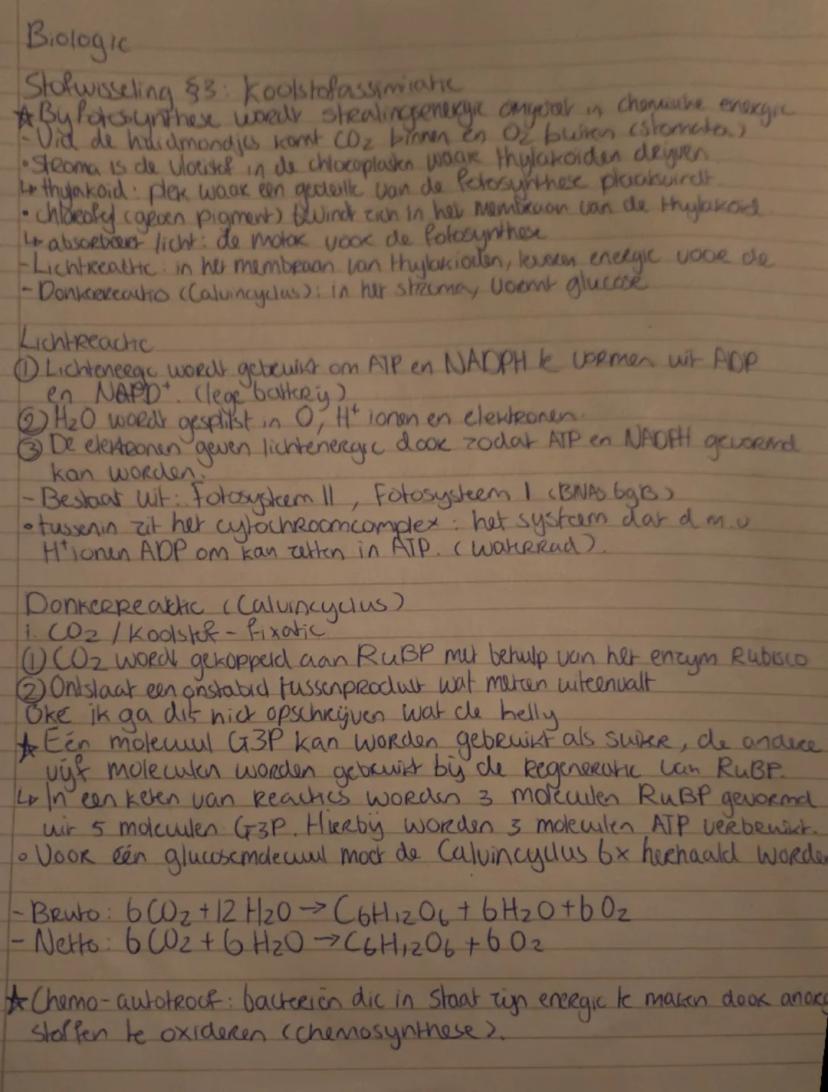 Biologie
Stofwisseling §3: Koolstofassimilatie
★ By Fotosynthese wordt stralingsenergie omgezet in chemische energie
- Via de huidmondjes komt CO2 binnen en O2 buiten (stomata)
• Stroma is de vloeistof in de chloroplasten waar thylakoïden drijven
↳ thylakoid: plek waar een gedeelte van de Fotosynthese plaatsvindt
• Chlorofyl (groen pigment) bevindt zich in het membraan van de thylakoid
↳ absorbeert licht: de motor voor de Fotosynthese
- Lichtreactie: in het membraan van thylakioden, leveren energie voor de
- Donkerreactie (Calvincyclus): in het stroma, vormt glucose
Lichtreactie
① Lichtenergie wordt gebruikt om ATP en NADPH te vormen uit ADP
en NAPD+. (lege batterij)
② H2O wordt gesplitst in O, H+ ionen en elektronen.
③ De elektronen geven lichtenergie door zodat ATP en NADPH gevormd
kan worden.
- Bestaat uit: Fotosysteem II, Fotosysteem I (BINAS 69B)
• tussenin zit het cytochroomcomplex: het systeem dat d.m.v
H+ionen ADP om kan zetten in ATP. (waterrad).
Donkerreactie (Calvincyclus)
1. CO2 / Koolstof-fixatie
① CO2 wordt gekoppeld aan RuBP met behulp van het enzym Rubisco
② Ontstaat een onstabiel tussenproduct wat meteen uiteenvalt
Oké ik ga dit niet opschrijven wat de helly
★ Eén molecuul G3P kan worden gebruikt als suiker, de andere
vijf moleculen worden gebruikt bij de regeneratie van RuBP.
↳ In een keten van reacties worden 3 moleculen RuBP gevormd
uit 5 moleculen G3P. Hierbij worden 3 moleculen ATP verbruikt.
• Voor één glucosemolecuul moet de Calvincyclus 6x herhaald worden
- Bruto: 6CO2 + 12 H2O → C6H12O6 + 6H2O + 6 O2
- Netto: 6CO2 + 6 H2O → C6H12O6 + 6 O2
★ Chemo-autotroof: bacteriën die in staat zijn energie te maken door anorg
stoffen te oxideren (chemosynthese).